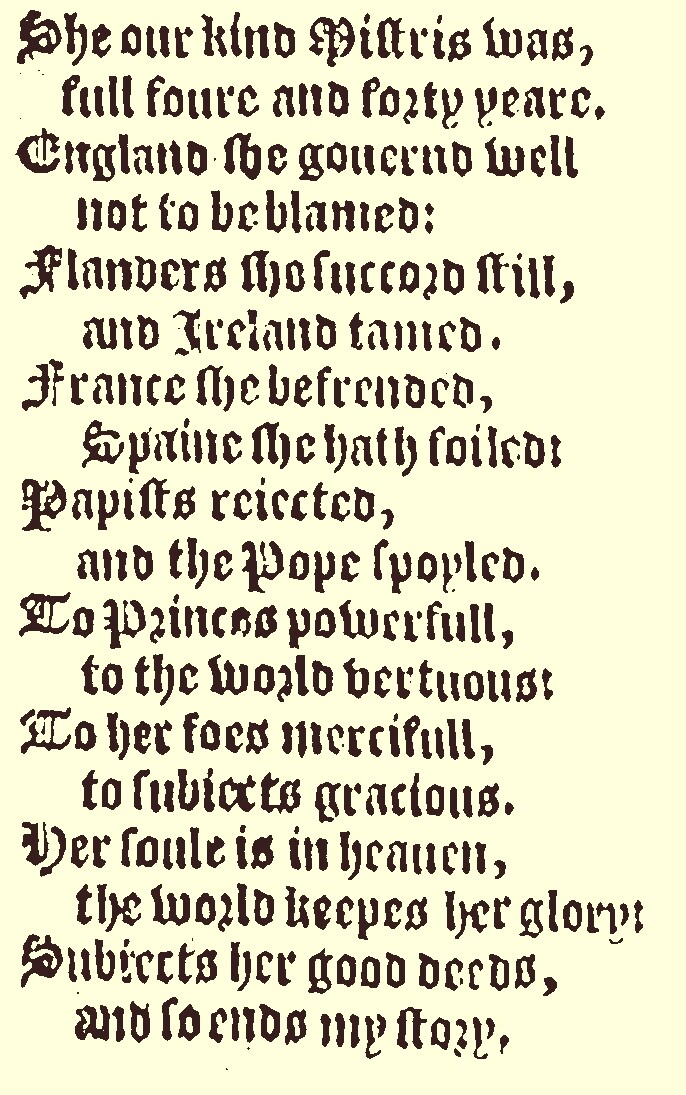 She our kind Mistris was,
full foure and forty yeare.
England she gouernd well
not to be blamed:
Flanders she succord still,
and Ireland tamed.
France she befrended,
Spaine she hath foiled:
Papists reiected,
and the Pope spoyled.
To Princes powerfull,
to the world vertuous:
To her foes mercifull,
to subiects gracious.
Her soule is in heauen,
the world keepes her glory:
Subiects her good deeds,
and so ends my story.